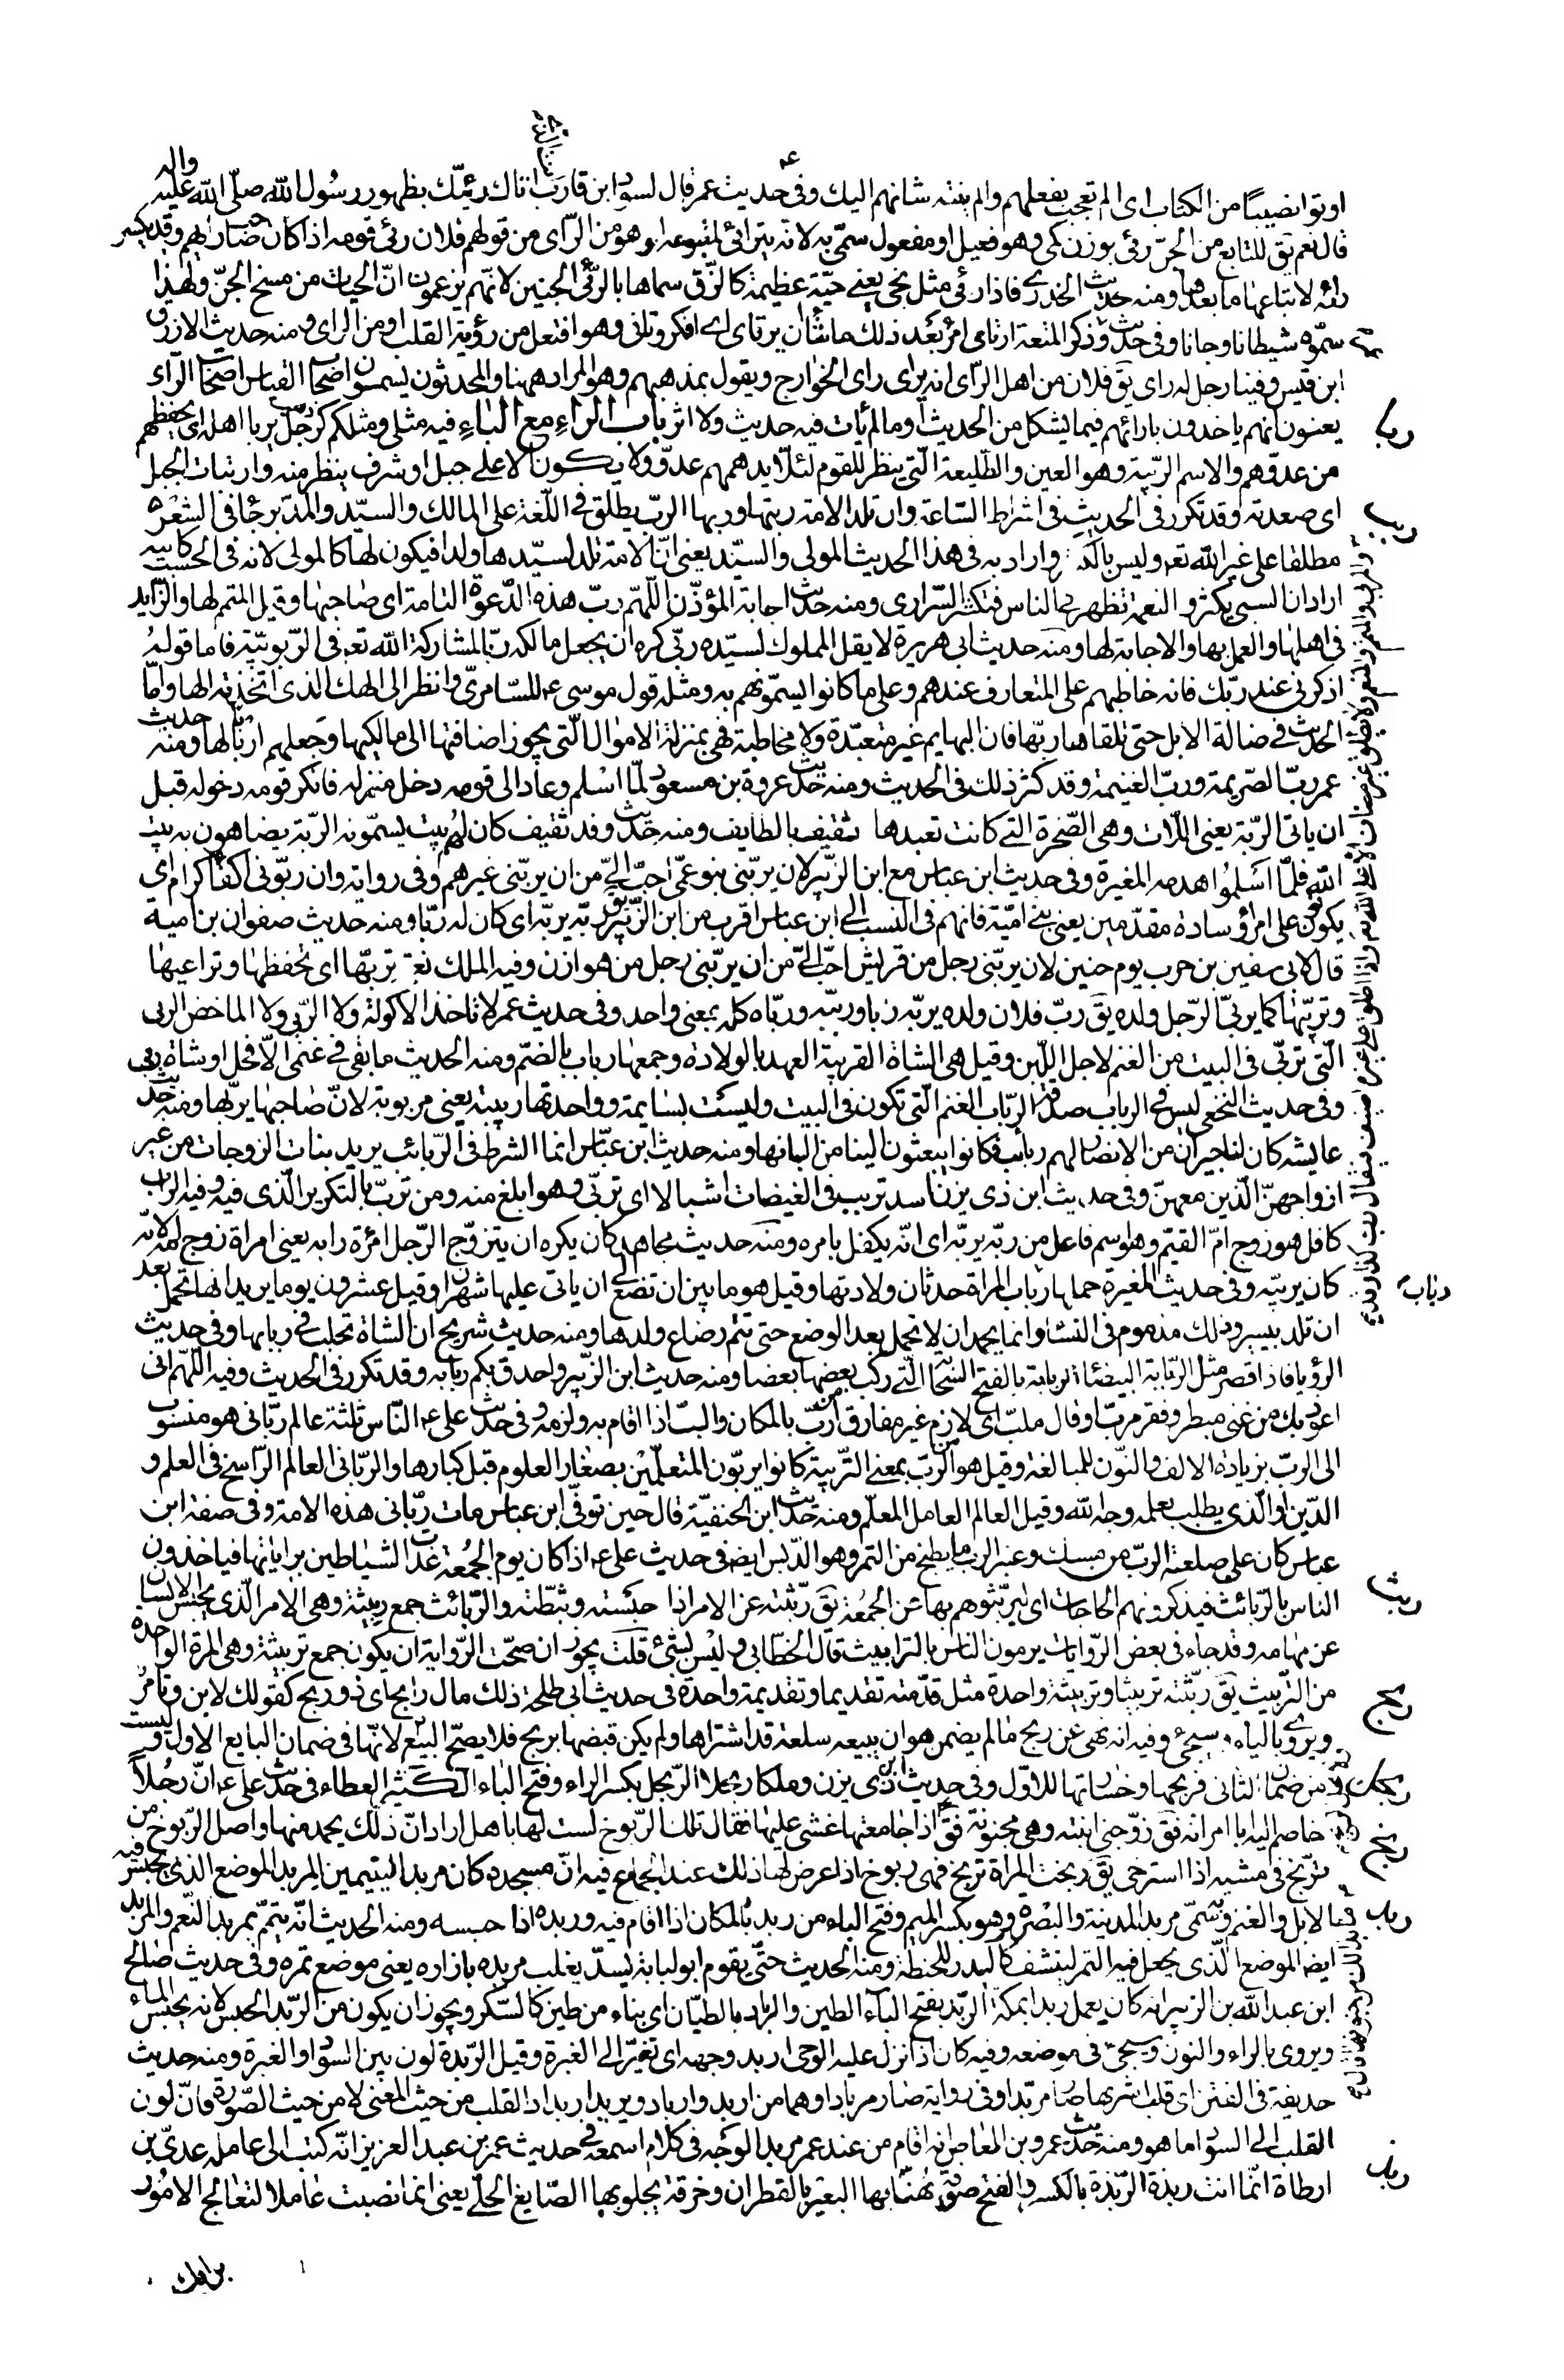 اوتوا نصيبًا من الكتاب اى الم تعجب بفعلهم والم ينته شانهم اليك وفى حديث عمر قال لسواد ابن قارب اتاك رئيّك بظهور رسول الله صلّى الله عليه واله
قال نعم يق للتابع من الجنّ رئى بوزن كمى وهو فعيل او مفعول سمّى به لانه يترائى لمتبوعه او هو من الرّاى من قولهم فلان رئى قومه اذا كان صاحب رايهم وقد يكسر
رائه لاتباعها ما بعدها ومنه حديث الخدرى فاذا رئى مثل نحى يعنى حيّة عظيمة كالزّق سماها بالرّئى الجنين لانّهم يزعمون انّ الحيات من مسخ الجنّ ولهذا
سمّوه شيطانا وجانا وفى حديث عمر وذكر المتعة ارتاى امرئ بعد ذلك ما شاء ان يرتاى اى افكر وتانى وهو افتعل من رؤية القلب او من الراى ومنه حديث الازرق
ابن قيس وفينا رجل له راى يق فلان من اهل الرّاى انه يرى راى الخوارج ويقول بمذهبهم وهو المراد ههنا والمحدثون يسمون اصحاب القياس اصحاب الرّاء
يعنون انّهم ياخذون بارائهم فيما يشكل من الحديث او ما لم يات فيه حديث ولا اثر باب الراء مع الباء فيه مثلى ومثلكم كرجل ذهب يربا اهله اى يحفظهم
من عدوّهم والاسم الربّية وهو العين والطّليعة الّتى ينظر للقوم لئلّا يدهمهم عدوّ ولا يكون الا على جبل او شرف ينظر منه وارتبات الجبل
اى صعدته وقد تكرر فى الحديث فى اشراط السّاعة وان تلد الامة ربتها وربها الربّ يطلق فى اللّغة على المالك والسيّد والمدبّر وجاء فى الشعر
مطلقا على غير الله تع وليس بالكثير واراد به فى هذا الحديث المولى والسيّد يعنى انّ الامة تلد لسيّدها ولدا فيكون لها كالمولى لانه فى الحسب كابيه
اراد ان السبى يكثر والنعمة تظهر فى الناس فتكثر السّرارى ومنه حديث اجابة المؤذّن اللّهم ربّ هذه الدّعوة التامة اى صاحبها وقيل المتمم لها والزّايد
فى اهلها والعمل بها والاجابة لها ومنه حديث ابى هريرة لا يقل المملوك لسيّده ربّى كره ان يجعل مالكه ربّا لمشاركة الله تع فى الرّبوبيّة فاما قوله
اذكرنى عند ربّك فانه خاطبهم على المتعارف عندهم وعلى ما كانوا يسمّونهم به ومثله قول موسى ع للسّامرى وانظر الى الهك الذى اتخذته الها واما
الحديث فى ضالة الابل حتى تلقاها ربّها فان البهايم غير متعبّدة ولا مخاطبة فهى بمنزلة الاموال الّتى يجوز اضافتها الى مالكيها وجعلهم اربابا لها ومنه حديث
عمر ربّ الصّريمة وربّ الغنيمة وقد كثر ذلك فى الحديث ومنه حديث عروة بن مسعود لمّا اسلم وعاد الى قومه دخل منزله فانكر قومه دخوله قبل
ان ياتى الرّبّة يعنى اللّات وهى الصّخرة التى كانت تعبدها ثقيف بالطايف ومنه حديث وفد ثقيف كان لهم بيت يسمّونه الربّة يضاهون به بيت
الله فلمّا اسلموا هدمه المغيرة وفى حديث ابن عباس مع ابن الزبير لان يربّنى بنو عمّى احبّ الىّ من ان يربّنى غيرهم وفى رواية وان ربّونى اكفّاء كرام اى
يكونون على امراء وسادة مقدّمين يعنى بنى اميّة فانهم فى النسب الى ابن عباس اقرب من ابن الزبير يق ربّه يربّه اى كان له ربّا ومنه حديث صفوان بن امية
قال لابى سفين بن حرب يوم حنين لان يربّنى رجل من قريش احبّ الىّ من ان يربّنى رجل من هوازن وفيه الملك نعمة تربّها اى تحفظها وتراعيها
وتربّيها كما يربّى الرّجل ولده يق ربّ فلان ولده يربّه ربّا وربّبه وربّاه كلّه بمعنى واحد وفى حديث عمر لا تاخذ الاكولة ولا الرّبى ولا الماخض الربى
الّتى تربّى فى البيت من الغنم لاجل اللّبن وقيل هى الشاة القريبة العهد بالولادة وجمعها رباب بالضمّ ومنه الحديث ما بقى فى غنمى الّا فحل او شاة ربى
وفى حديث النخعى ليس فى الرباب صدقة الرّباب الغنم الّتى تكون فى البيت وليست بسايمة وواحدتها ربيبة يعنى مربوبة لانّ صاحبها يربّها ومنه حديث
عايشه كان لنا جيران من الانصار لهم ربائب فكانوا يبعثون الينا من البانها ومنه حديث ابن عبّاس انما الشرط فى الرّبائب يريد بنات الزوجات من غير
ازواجهنّ الّذين معهنّ وفى حديث ابن ذى يزن اسد تربب فى الغيضات اشبالا اى تربّى وهو ابلغ منه ومن تربّ بالتكرير الّذى فيه وفيه الرابّ
كافل هو زوج امّ القيّم وهو اسم فاعل من ربّه يربّه اى انّه يكفل بامره ومنه حديث مجاهد كان يكره ان يتزوّج الرّجل امرءة رابه يعنى امراة زوج امّه لانّه
كان يربّيه وفى حديث المغيرة حملها رباب رباب المراة حدثان ولادتها وقيل هو ما بين ان تضع الى ان ياتى عليها شهران وقيل عشرون يوما يريد انها تحمل بعد
ان تلد بيسير وذلك مذموم فى النساء وانما يحمد ان لا تحمل بعد الوضع حتى تتم رضاع ولدها ومنه حديث شريح ان الشاة تحلب فى ربابها وفى حديث
الرؤيا فاذا قصر مثل الرّبابة البيضاء الربابة بالفتح السّحابة الّتى ركب بعضها بعضا ومنه حديث ابن الزّبير واحدق بكم ربابه وقد تكرر فى الحديث وفيه اللّهم انى
اعوذ بك من غنى مبطر وفقر مربّ او قال ملبّ اى لازم غير مفارق من اربّ بالمكان والبّ اذا اقام به ولزمه وفى حديث على ع النّاس ثلثة عالم ربّانى هو منسوب
الى الربّ بزيادة الالف والنّون للمبالغة وقيل هو من الربّ بمعنى التّربية كانوا يربّون المتعلّمين بصغار العلوم قبل كبارها والربّانى العالم الرّاسخ فى العلم و
الدّين او الّذى يطلب بعلمه وجه الله وقيل العالم العامل المعلّم ومنه حديث ابن الحنفيّة قال حين توفّى ابن عباس مات ربّانى هذه الامة وفى صفة ابن
عباس كان على صلعته الربّ من مسك وعنبر الربّ ما يطبخ من التمر وهو الدّبس ايض فى حديث على ع اذا كان يوم الجمعة غدت الشياطين براياتها فياخذون
الناس بالرّبائث فيذكرونهم الحاجات اى ليربّثوهم بها عن الجمعة يق ربّثته عن الامر اذا حبسته وثبّطته والرّبائث جمع ربيثة وهى الامر الّذى يحبس الانسان
عن مهامه وقد جاء فى بعض الرّوايات يرمون الناس بالترابيث قال الخطّابى وليس بشئ قلت يجوز ان صحّت الرّواية ان يكون جمع تربيثة وهى المرة الواحدة
من التّربيث يق ربّثته تربيثا وتربيثة واحدة مثل قدّمته تقديما وتقديمة واحدة فى حديث ابى طلحة ذلك مال رابح اى ذو ربح كقولك لابن وتامر
ويروى بالياء وسيجئ وفيه انه نهى عن ربح ما لم يضمن هو ان يبيعه سلعة قد اشتراها ولم يكن قبضها بربح فلا يصحّ البيع لانّها فى ضمان البايع الاول وليست
من ضمان الثانى فربحها وخسارتها للاوّل وفى حديث ابن ذى يزن وملكا ربحلا الرّبحل بكسر الراء وفتح الباء الكثير العطاء فى حديث على ع انّ رجلاً
خاصم اليه ابا امراته فق زوّجنى ابنته وهى مجنونة فق اذا جامعتها غشى عليها فقال تلك الرّبوخ لست لها باهل اراد انّ ذلك يحمد منها واصل الرّبوخ من
تربّخ فى مشيه اذا استرخى يق ربخت المراة تربخ فهى ربوخ اذا عرض لها ذلك عند الجماع فيه انّ مسجده كان مربدا ليتيمين المربد الموضع الّذى يحبس فيه
الابل والغنم وبه سمّى مربد المدينة والبصرة وهو بكسر الميم وفتح الباء من ربد بالمكان اذا اقام فيه وربده اذا حبسه ومنه الحديث انّه يتيمّم بمربد النّعم والمربد
ايض الموضع الّذى يجعل فيه التمر لينشف كالبيدر للحنطة ومنه الحديث حتّى يقوم ابو لبابة يسدّ ثعلب مربده بازاره يعنى موضع تمره وفى حديث صالح
ابن عبد الله بن الزبير انه كان يعمل ربدا بمكة الربد بفتح الباء الطين والرباد الطيّان اى بناء من طين كالسّكر ويجوز ان يكون من الرّبد الحبس لانه يحبس الماء
ويروى بالراء والنون وسيجئ فى موضعه وفيه كان اذا نزل عليه الوحى اربد وجهه اى تغيّر الى الغبرة وقيل الرّبدة لون بين السواد والغبرة ومنه حديث
حذيفة فى الفتن اى قلب اشربها صار مربدّا وفى رواية صار مربادا وهما من اربد وارباد ويريد اربداد القلب من حيث المعنى لا من حيث الصّورة فانّ لون
القلب الى السواد ما هو ومنه حديث عمرو بن العاص انه اقام من عند عمر مربد الوجه فى كلام اسمعه فى حديث عمر بن عبد العزيز انّه كتب الى عامله عدىّ بن
ارطاة انّما انت ربذة الرّبذة بالكسر والفتح صوفة يهنأ بها البعير بالقطران وخرقة يجلو بها الصّايغ الحلى يعنى انما نصبت عاملا لتعالج الامور
ربا
ربب
رباب
ربث
ربح
ربحل
ربخ
ربد
ربذ
برايك